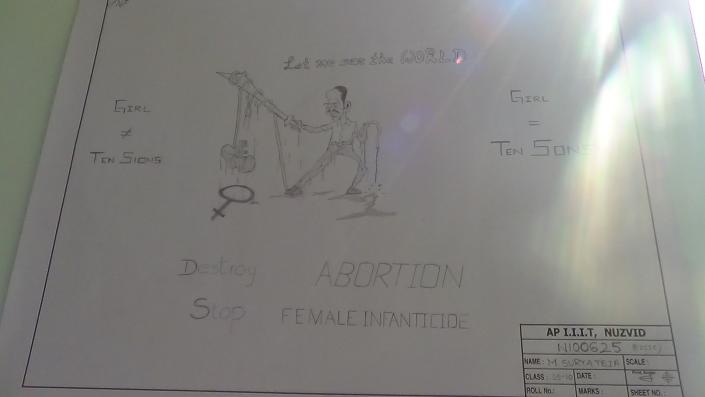 Let me see the WORLD
GIRL
≠
TEN SIONS
GIRL
=
TEN SONS
Destroy ABORTION
Stop FEMALE INFANTICIDE
AP I.I.I.T, NUZVID
N100625
NAME: M SURYATEJA SCALE:
CLASS: DATE:
ROLL No: MARKS: SHEET NO.: